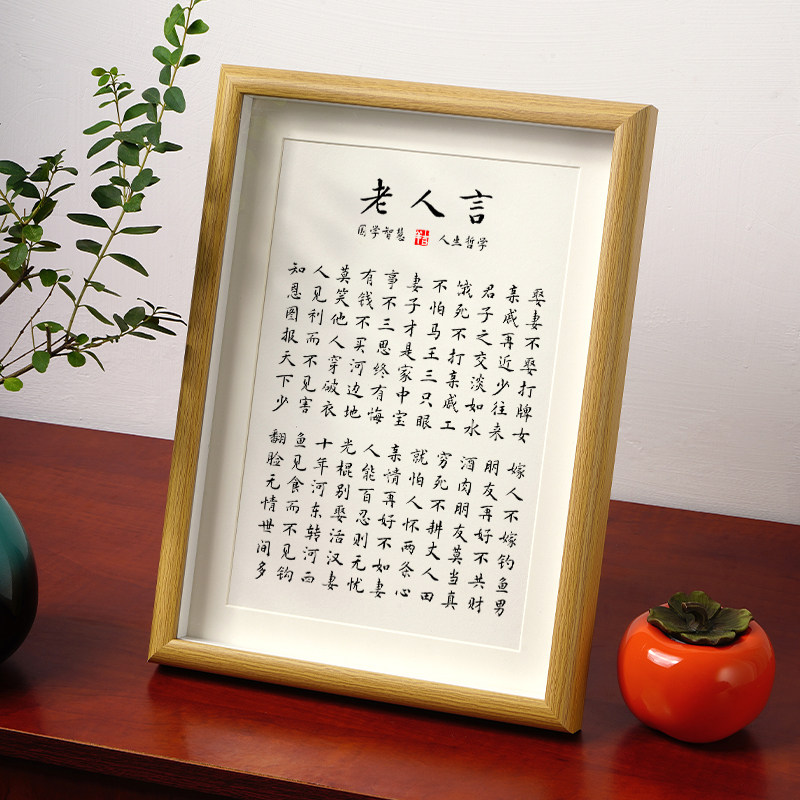 老人言
国学智慧 人生哲学
娶妻不娶打牌女 嫁人不嫁钓鱼男
亲戚再近少往来 朋友再好不共财
君子之交淡如水 酒肉朋友莫当真
饿死不打亲戚工 穷死不耕丈人田
不怕马王三只眼 就怕人怀两条心
妻子才是家中宝 亲情再好不如妻
事不三思终有悔 人能百忍则无忧
有钱不买河边地 光棍别娶活汉妻
莫笑他人穿破衣 十年河东转河西
人见利而不见害 鱼见食而不见钩
知恩图报天下少 翻脸无情世间多